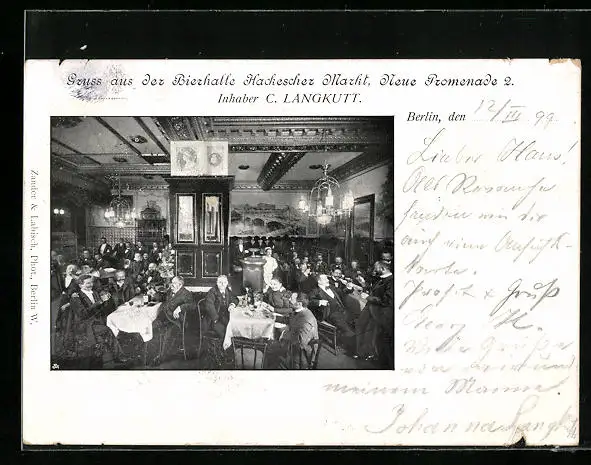 Gruss aus der Bierhalle Hackescher Markt, Neue Promenade 2.
Inhaber C. LANGKUTT.
Berlin, den 12/III 99.
Zander & Labisch, Phot., Berlin W.
Lieber Hans!
senden wir dir
auch eine Ansicht-
karte.
Prosit & Gruß
Georg H.
Grüße
von
meinem Manne
Johanna